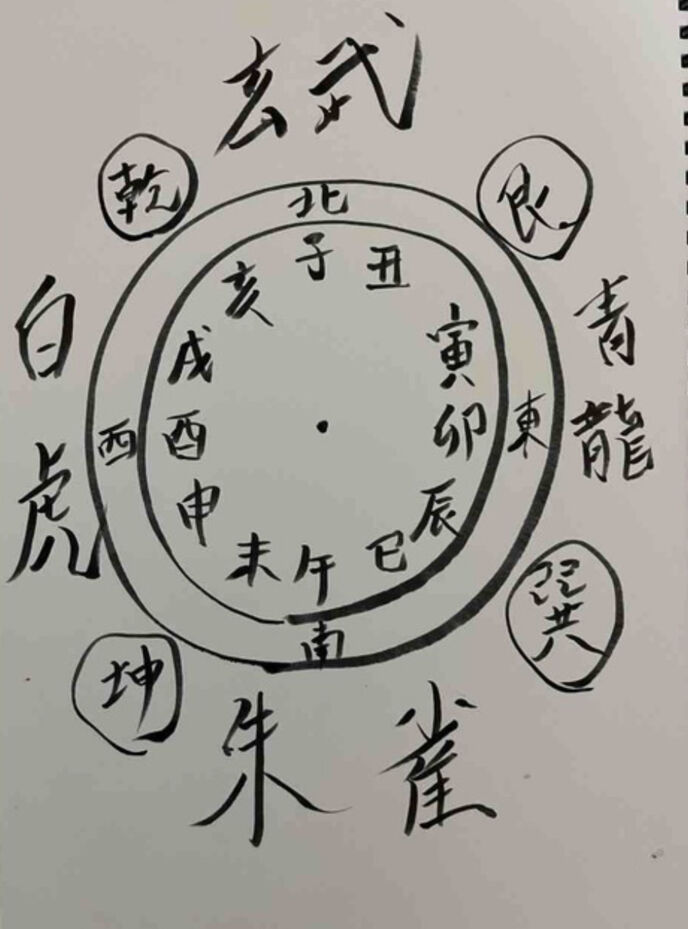 玄武
乾
艮
北
子
丑
亥
寅
戌
卯
酉
西
東
辰
申
巳
未
午
南
白虎
青龍
坤
巽
朱雀